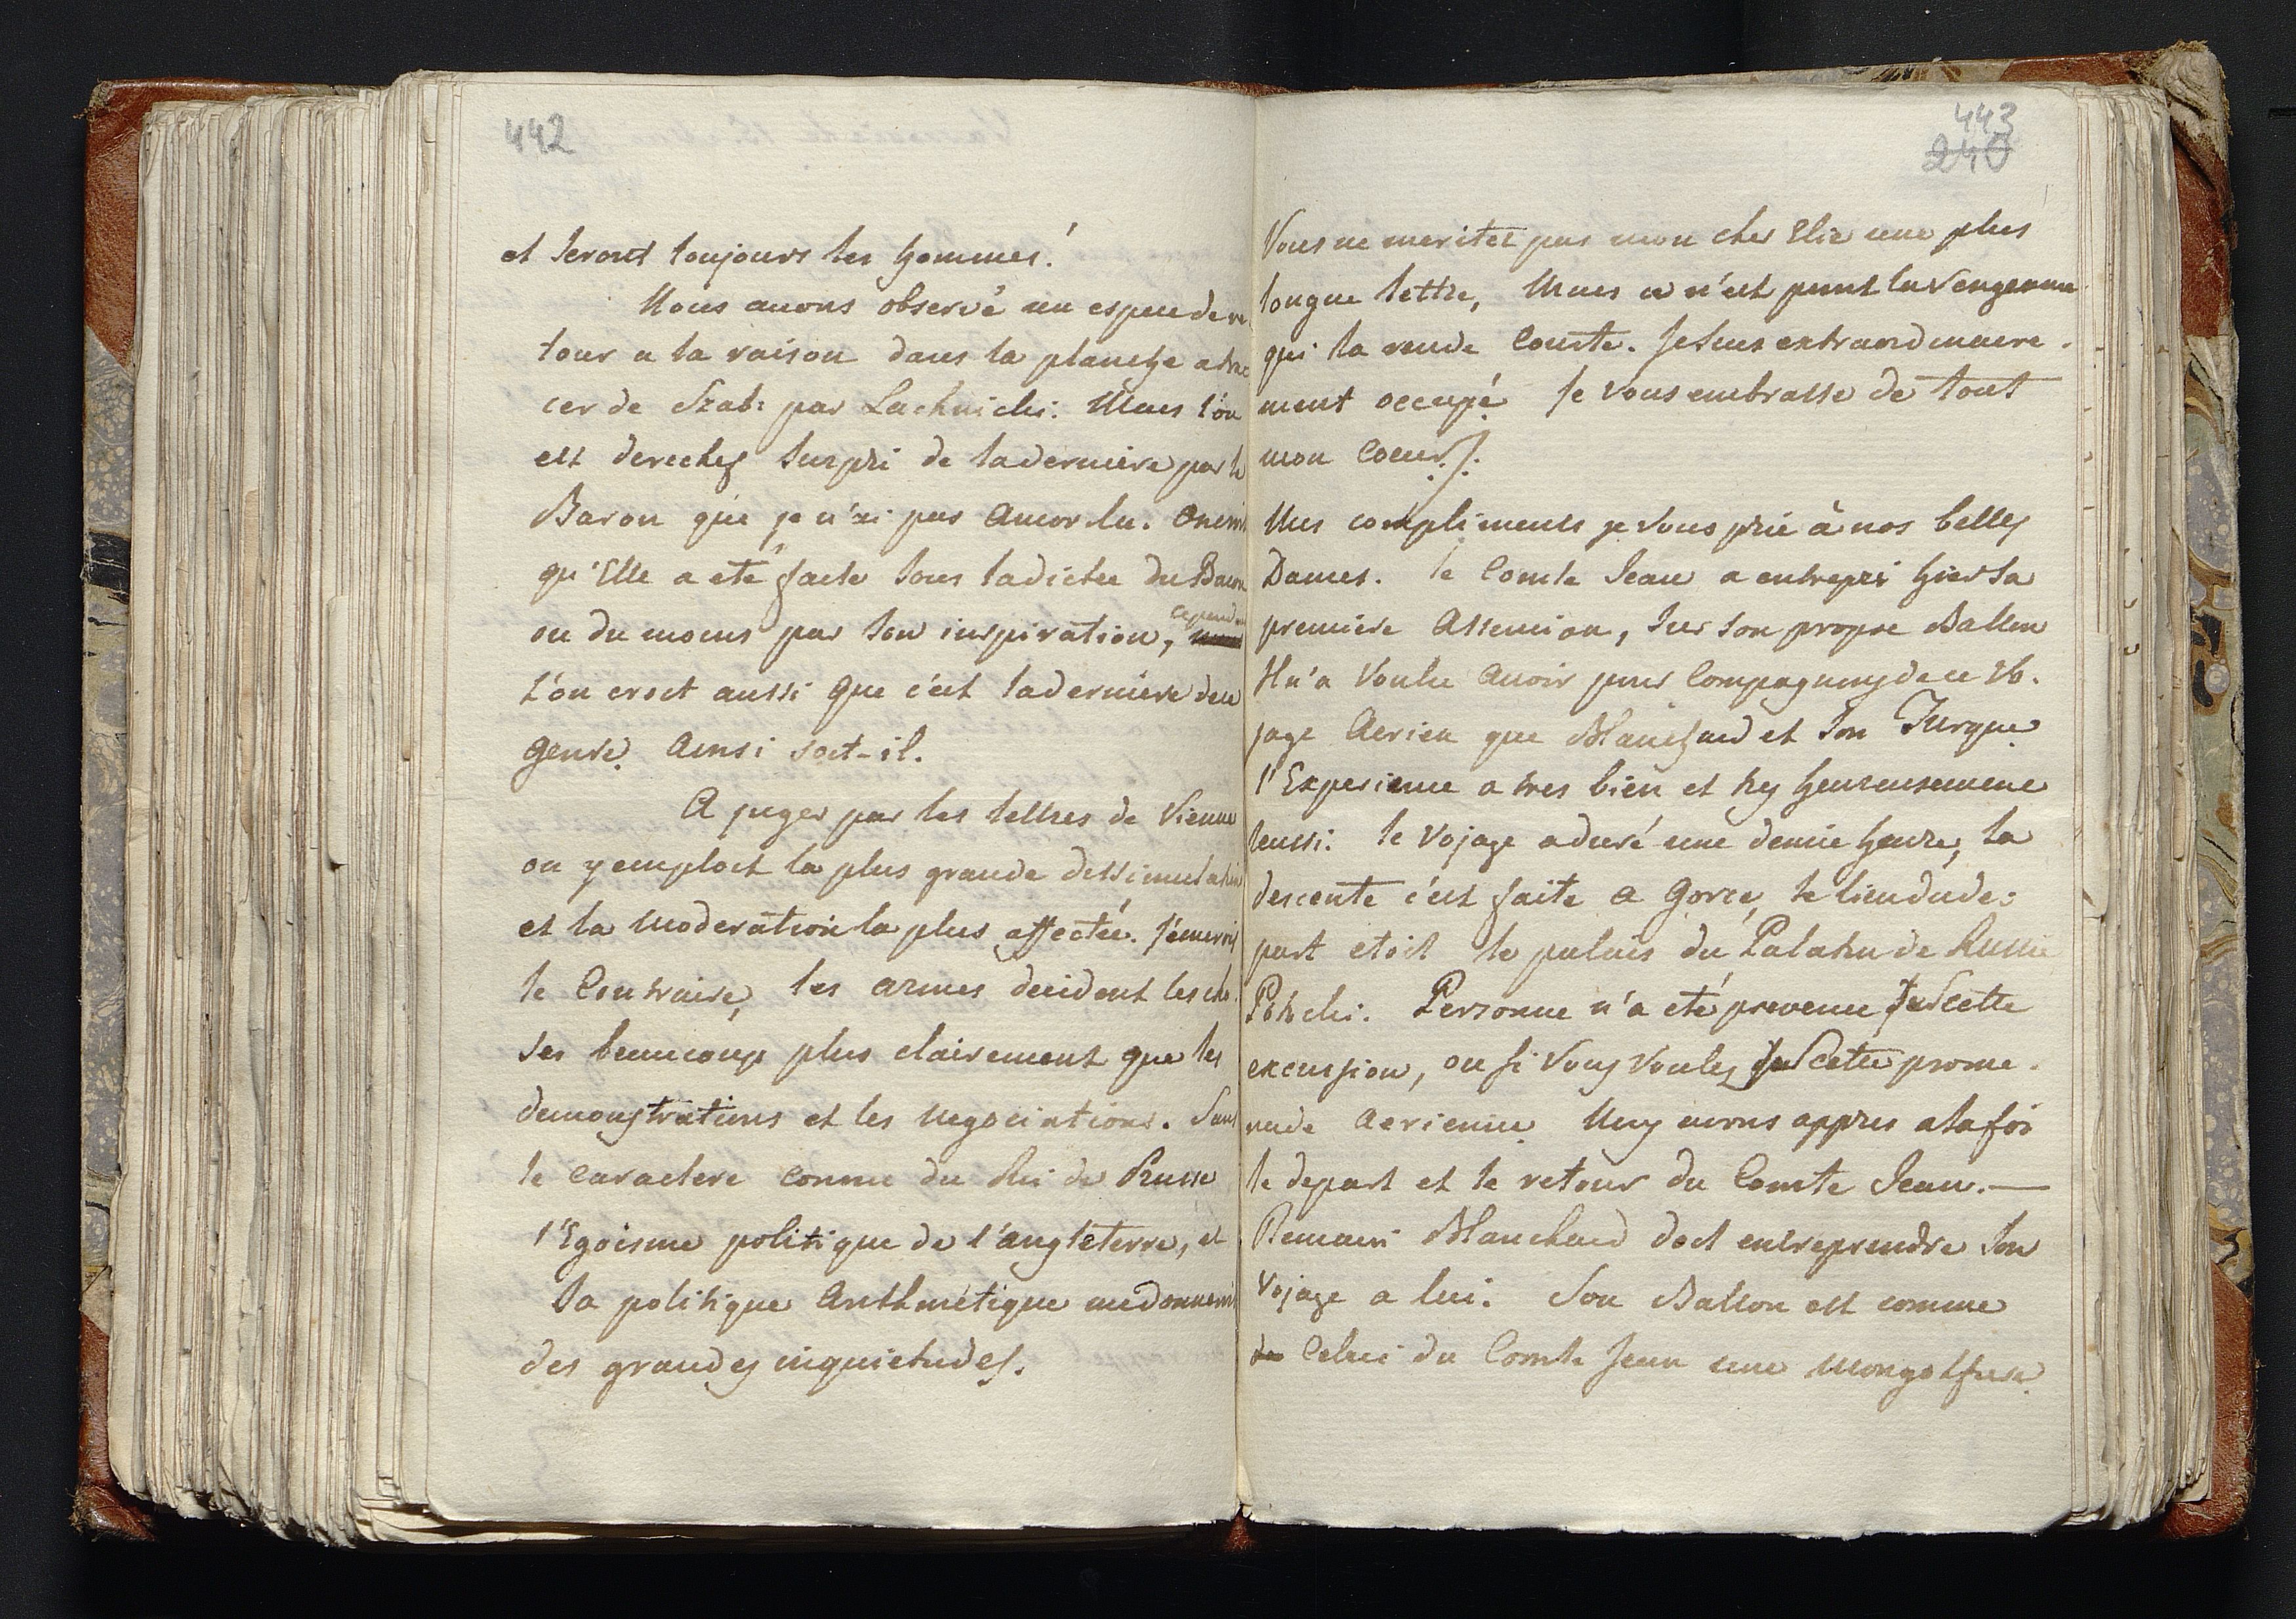 442
et seront toujours les hommes!
Nous avons observé un espece de re
tour a la raison dans la planche a tra
cer de Szab: par Lachnicki. Mais l'on
est derechef surpri de la derniere par le
Baron que je n'ai pas encor lu. On
qu'Elle a eté faite sous la dictée du Baron
ou du moins par son inspiration, cependant
l'on croit aussi que c'est la derniere de ce
genre. Ainsi soit-il.
A juger par les lettres de Vienne
on y emploit la plus grande dissimulation
et la moderation la plus affectée. J'
le Contraire, les armes decident les cho-
ses beaucoup plus clairement que les
demonstrations et les negociations. Sans
le caractere connu du Roi de Prusse
l'Egoisme politique de l'angleterre, et
sa politique Arithmétique me donneroit
des grandes inquietudes.
443
240
Vous ne meritez pas mon cher Elie une plus
longue lettre, Mais ce n'est point la vengeance
qui la rende courte. Je suis extraordinaire-
ment occupé Je vous embrasse de tout
mon Coeur.
Mes compliments je vous prie à nos belles
Dames. le Comte Jean a entrepri hier sa
premiere Assension, sur son propre Ballon
Il n'a voulu avoir pour Compagnons de ce Vo-
jage Aerien que Blanchard et son Turque
l'Experience a tres bien et tres heureusement
reussi. le Vojage a duré une demie heure, la
descente c'est faite a Gorce, le lieu du de-
part etoit le palais du Palatin de Russie
Potocki. Personne n'a eté prevenu sur cette
excursion, ou si vous voulez sur cette prome-
nade Aerienne. Nous avons appris a la foi
le depart et le retour du Comte Jean. —
Demain Blanchard doit entreprendre son
Vojage a lui. Son Ballon est comme
celui du Comte Jean une Mongolfiere.